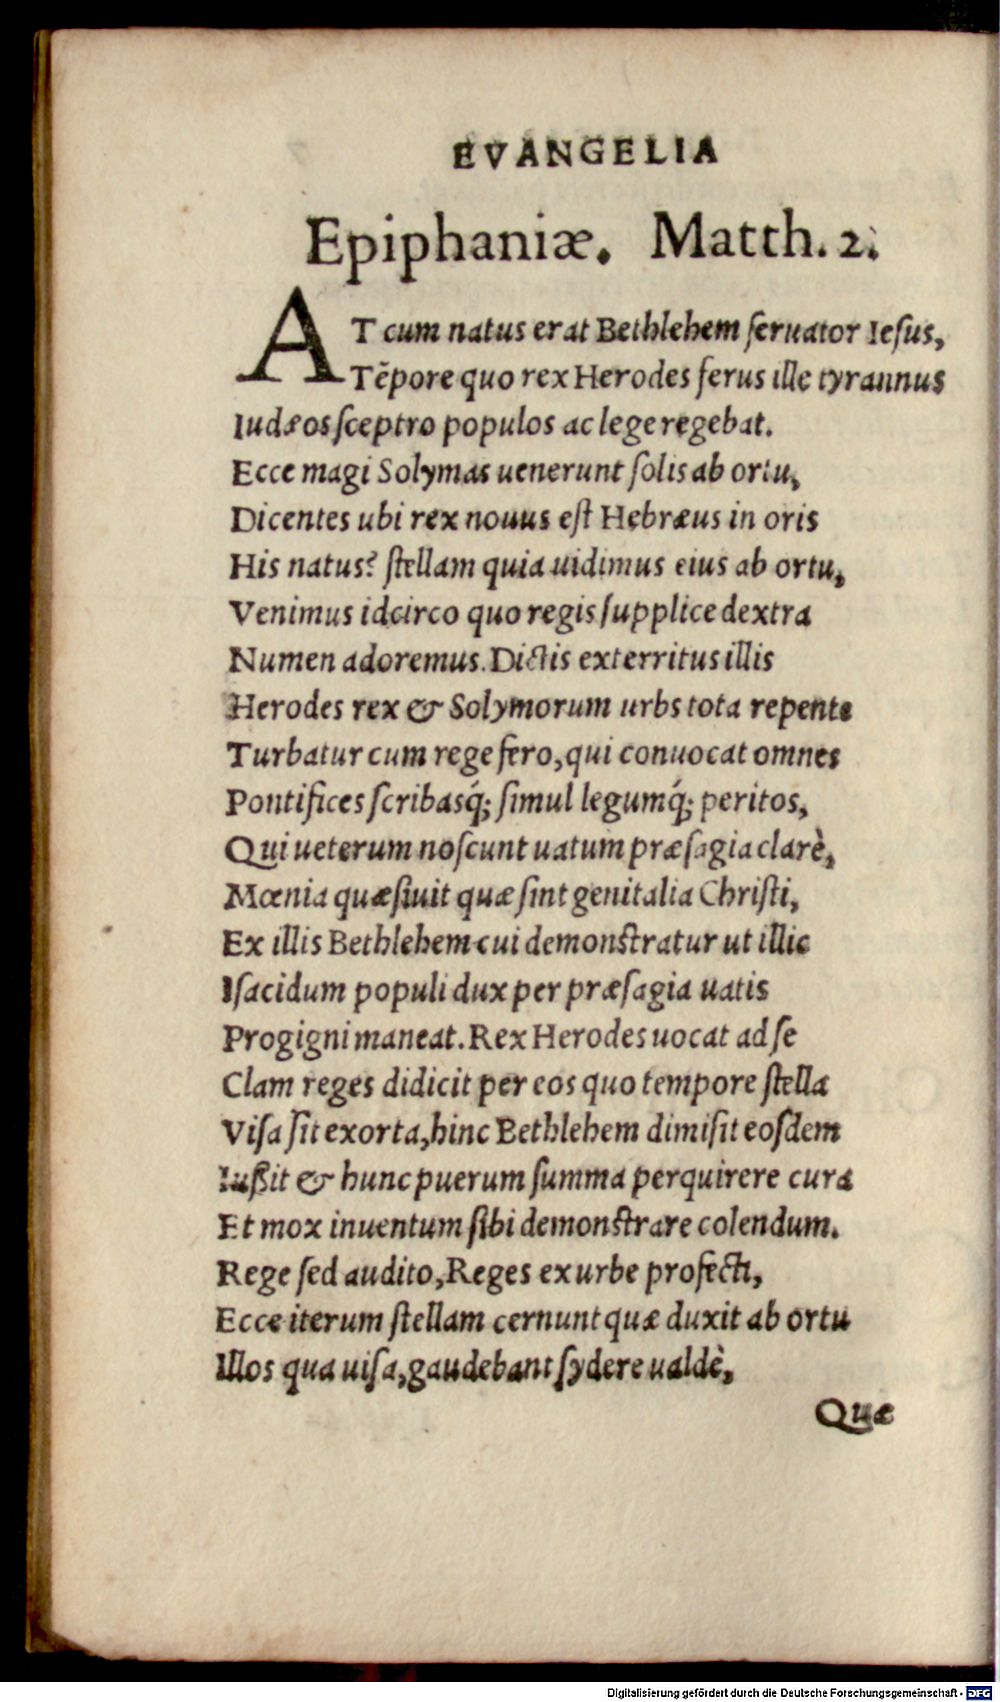 EVANGELIA
Epiphaniæ. Matth. 2.
AT cum natus erat Bethlehem ſeruator Ieſus,
Tẽpore quo rex Herodes ferus ille tyrannus
Iudæos ſceptro populos ac lege regebat.
Ecce magi Solymas uenerunt ſolis ab ortu,
Dicentes ubi rex nouus eſt Hebræus in oris
His natus? ſtellam quia uidimus eius ab ortu,
Venimus idcirco quo regis ſupplice dextra
Numen adoremus. Dictis exterritus illis
Herodes rex & Solymorum urbs tota repente
Turbatur cum rege fero, qui conuocat omnes
Pontifices ſcribasq́; ſimul legumq́; peritos,
Qui ueterum noſcunt uatum præſagia clarè,
Mœnia quæſiuit quæ ſint genitalia Chriſti,
Ex illis Bethlehem cui demonſtratur ut illic
Iſacidum populi dux per præſagia uatis
Progigni maneat. Rex Herodes uocat ad ſe
Clam reges didicit per eos quo tempore ſtella
Viſa ſit exorta, hinc Bethlehem dimiſit eoſdem
Iußit & hunc puerum ſumma perquirere cura
Et mox inuentum ſibi demonſtrare colendum.
Rege ſed audito, Reges ex urbe profecti,
Ecce iterum ſtellam cernunt quæ duxit ab ortu
Illos qua uiſa, gaudebant ſydere ualdè,
Quæ
Digitalisierung gefördert durch die Deutsche Forschungsgemeinschaft - DFG